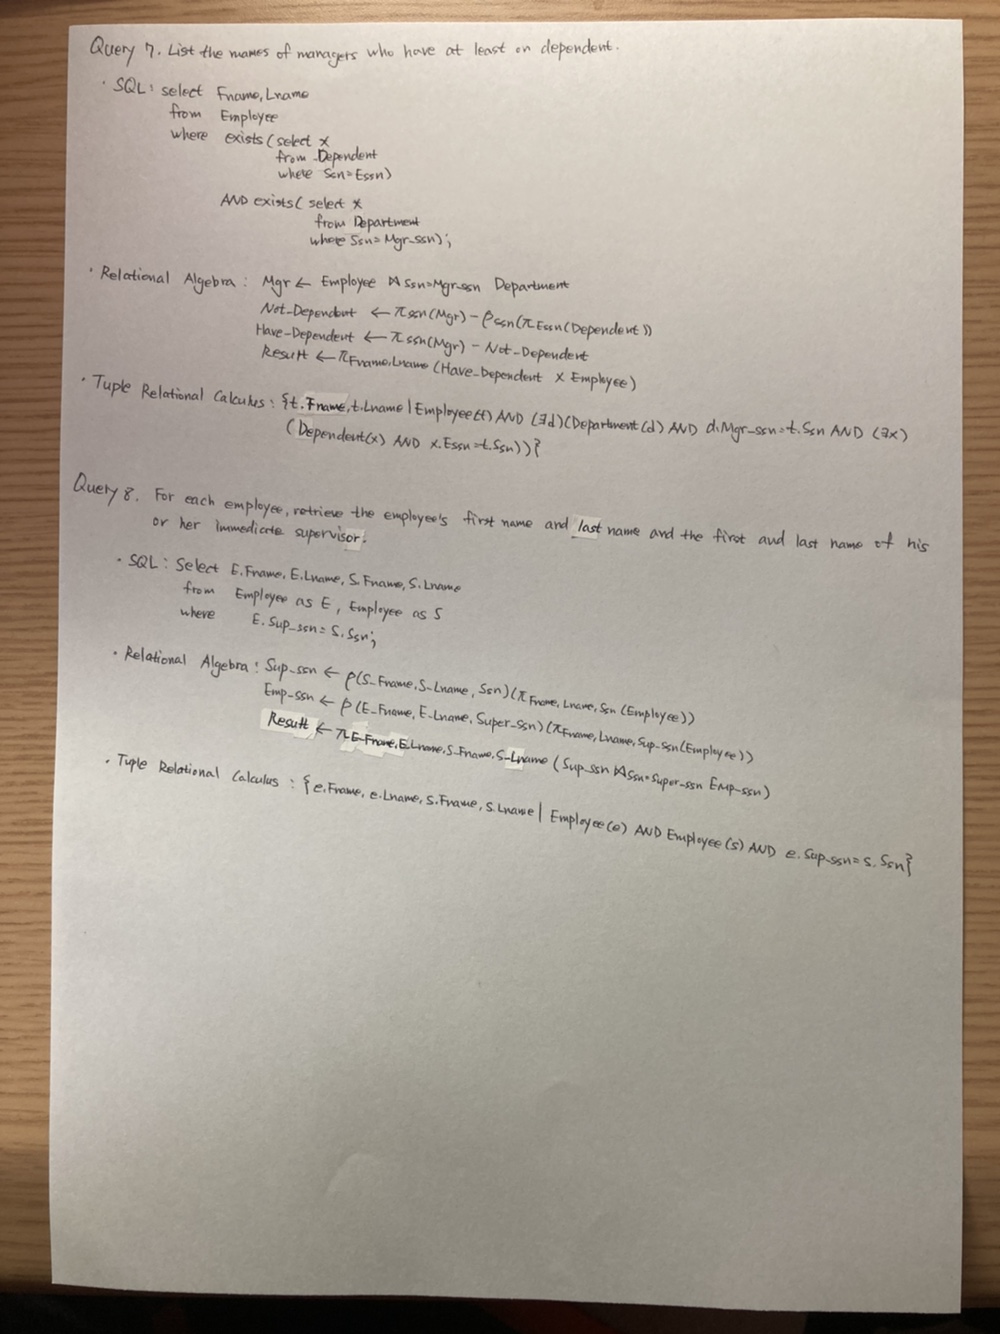 Query 7. List the names of managers who have at least on dependent.
· SQL: select Fname, Lname
from Employee
where exists ( select *
from Dependent
where Ssn=Essn)
AND exists( select *
from Department
where Ssn=Mgr_ssn);
· Relational Algebra : Mgr ← Employee ⋈ Ssn=Mgr_ssn Department
Not_Dependent ← π ssn (Mgr) - ρ ssn (π Essn (Dependent))
Have-Dependent ← π ssn (Mgr) - Not_Dependent
Result ← π Fname, Lname (Have_Dependent X Employee)
· Tuple Relational Calculus : {t.Fname, t.Lname | Employee(t) AND (∃d)(Department(d) AND d.Mgr_ssn=t.Ssn AND (∃x)
(Dependent(x) AND x.Essn=t.Ssn))}
Query 8. For each employee, retrieve the employee's first name and last name and the first and last name of his
or her immediate supervisor.
· SQL : Select E.Fname, E.Lname, S.Fname, S.Lname
from Employee as E, Employee as S
where E.Sup_ssn = S.Ssn;
· Relational Algebra : Sup_ssn ← ρ(S_Fname, S_Lname, Ssn)(π Fname, Lname, Ssn (Employee))
Emp_ssn ← ρ(E_Fname, E_Lname, Super_ssn)(π Fname, Lname, Sup_ssn (Employee))
Result ← π E_Fname, E_Lname, S_Fname, S_Lname (Sup_ssn ⋈ Ssn=Super_ssn Emp_ssn)
· Tuple Relational Calculus : {e.Fname, e.Lname, s.Fname, s.Lname | Employee(e) AND Employee(s) AND e.Sup_ssn=s.Ssn}